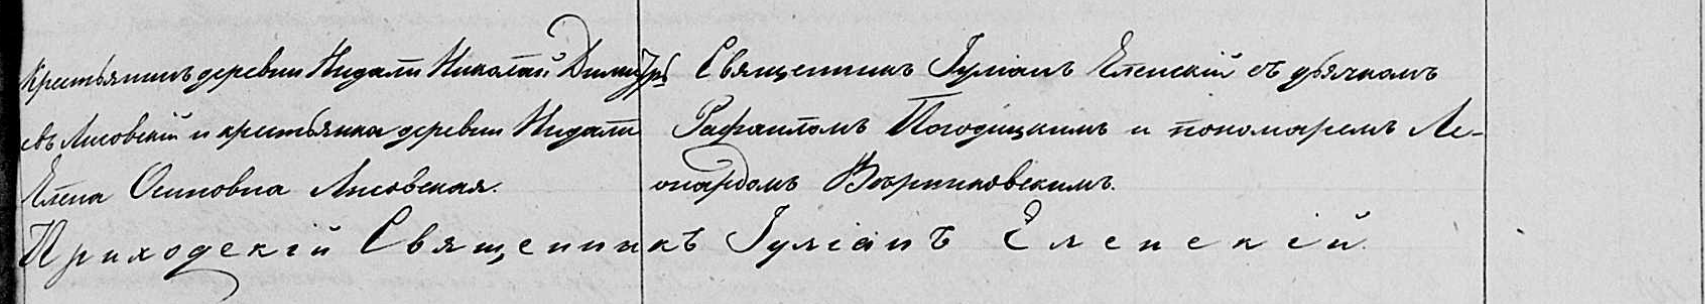 Крестьянинъ деревни Нидали Николай Димитрі-
евъ Лисовскій и крестьянка деревни Нидали
Елена Осиповна Лисовская.
Священникъ Іуліанъ Еленскій съ дьячкомъ
Рафаиломъ Погодицкимъ и пономаремъ Ле-
онардомъ Верниковскимъ.
Приходскій Священникъ Іуліанъ Еленскій.